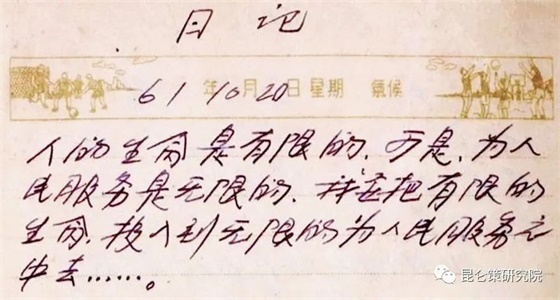 日记
61年10月20日 星期 气候
人的生命是有限的，可是，为人
民服务是无限的，我要把有限的
生命，投入到无限的为人民服务之
中去……。
昆仑策研究院